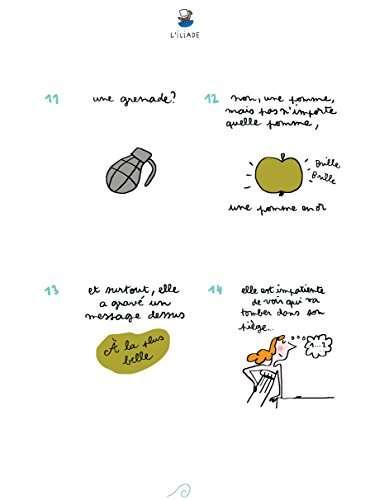 L'ILIADE
11 une grenade?
12 non, une pomme,
mais pas n'importe
quelle pomme,
Brille
Brille
une pomme en or
13 et surtout, elle
a gravé un
message dessus
À la plus
belle
14 elle est impatiente
de voir qui va
tomber dans son
piège...
1...2